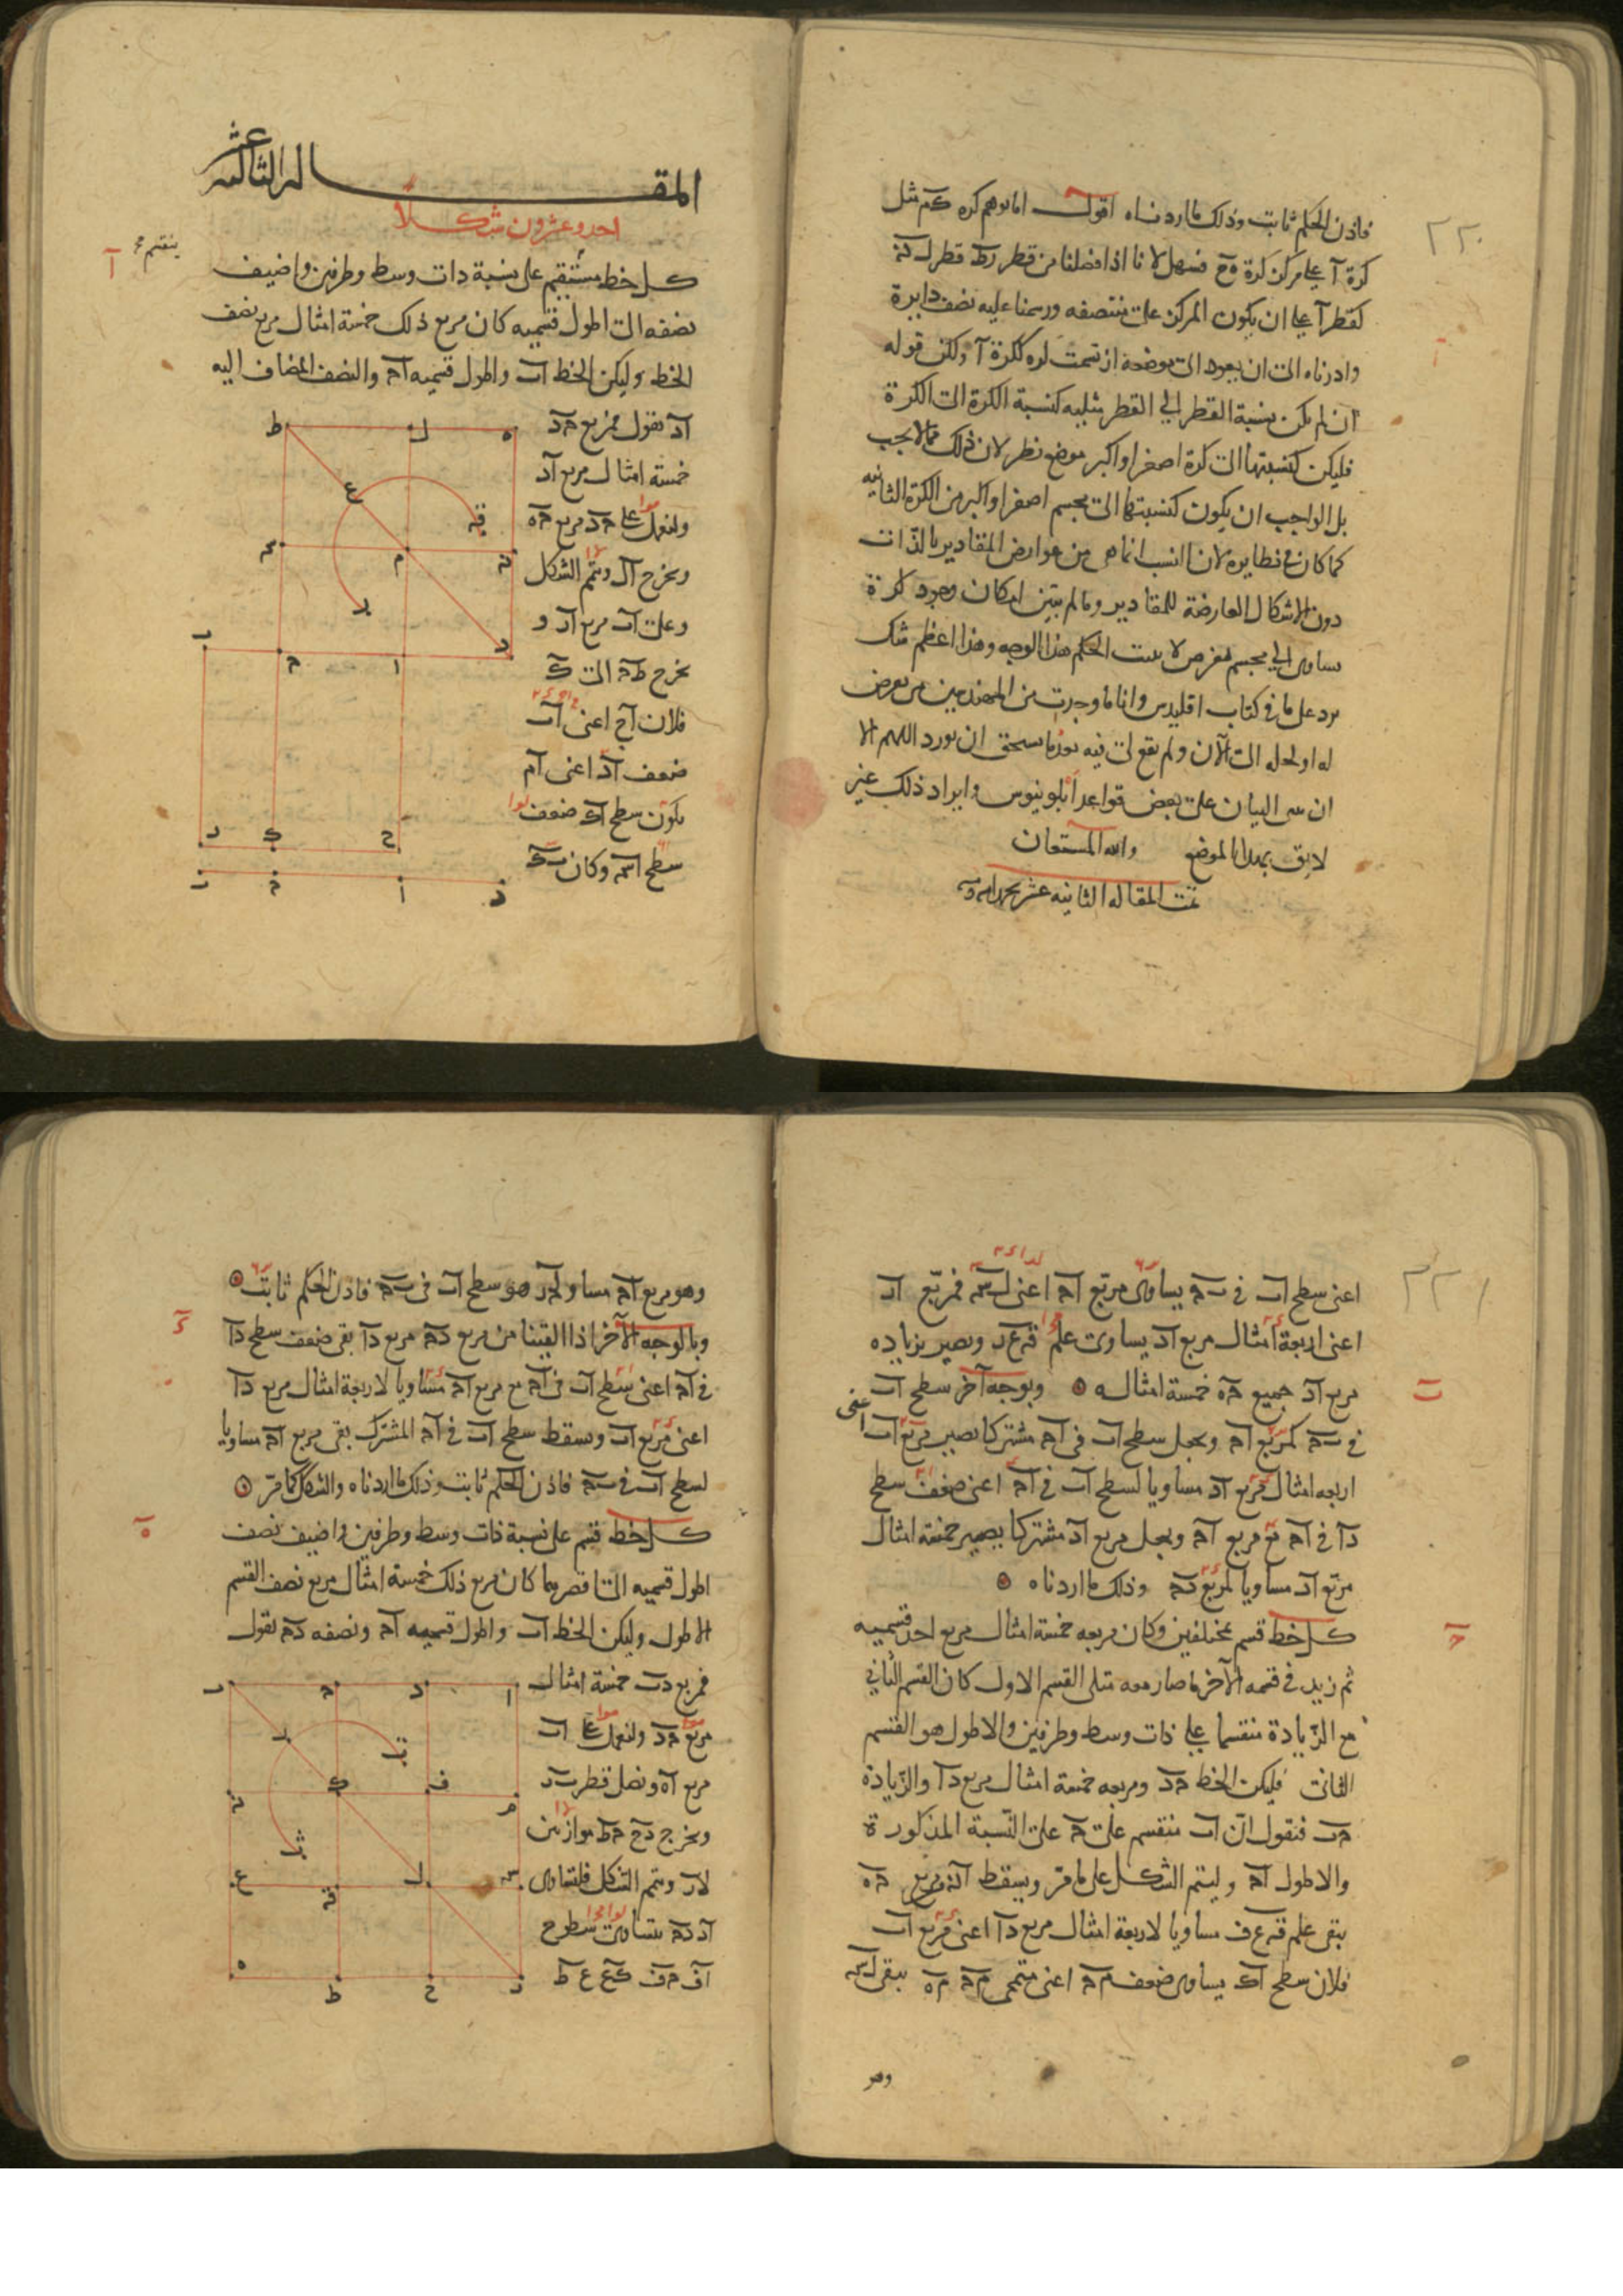 ٢٢٠
فاذن الحكم ثابت وذلك ما اردناه اقول اما توهم كره مثل
كرة آ على مركز كرة فسهل لانا اذا فصلنا من قطر قطر
كقطر آ على ان يكون المركز على منتصفه ورسمنا عليه نصف دايرة
وادرناه الى ان يعود الى موضعه ارتسمت كره ككرة آ ولكن قوله
ان لم يكن نسبة القطر الى القطر مثلثه كنسبة الكرة الى الكرة
فليكن كنسبتها الى كرة اصغر او اكبر موضع نظر لان ذلك مما لا يجب
بل الواجب ان يكون كنسبتها الى مجسم اصغر او اكبر من الكرة الثانيه
كما كان في نظايره لان النسب انما هي من عوارض المقادير بالذات
دون الاشكال العارضة للمقادير وما لم يتبين امكان وجود كرة
تساوى اي مجسم يفرض لا يثبت الحكم بهذا الوجه وهذا اعظم شك
يرد على ما في كتاب اقليدس وانا ما وجدت من المهندسين من تعرض
له او لحله الى الآن ولم يقع لى فيه بعد ما يستحق ان يورد اللهم الا
ان بنى البيان على بعض قواعد ابلونيوس وايراد ذلك غير
لايق بهذا الموضع والله المستعان
تمت المقاله الثانيه عشر
المقاله الثالثه عشر
احد وعشرون شكلا
آ
كل خط مستقيم على نسبة ذات وسط وطرفين واضيف
نصفه الى اطول قسميه كان مربع ذلك خمسة امثال مربع نصف
الخط وليكن الخط اب واطول قسميه اح والنصف المضاف اليه
اد نقول فمربع حد
خمسة امثال مربع اد
ولنعمل على حد مربع حه
ونخرج ال ونتم الشكل
وعلى اب مربع ار و
نخرج طح الى ك
فلان اح اعنى اب
ضعف اد اعنى ام
يكون سطح اك ضعف
سطح وكان بك
٢٢١
اعنى سطح اب في بح يساوى مربع اح اعنى فمربع ار
اعنى اربعة امثال مربع اد يساوى علم ويصير بزياده
مربع اد جميع حه خمسة امثاله وبوجه آخر سطح اب
في بح كمربع اح ونجعل سطح اب في اح مشتركا يصير مربع اب اعنى
اربعه امثال مربع اد مساويا لسطح اب في اح اعنى ضعف سطح
دا في اح مع مربع اح ونجعل مربع اد مشتركا يصير خمسة امثال
مربع اد مساويا لمربع دح وذلك ما اردناه
كل خط قسم بمختلفين وكان مربعه خمسة امثال مربع احد قسميه
ثم زيد في قسمه الآخر ما صار معه مثلى القسم الاول كان القسم الثاني
مع الزيادة منقسما على ذات وسط وطرفين والاطول هو القسم
الثانى فليكن الخط حد ومربعه خمسة امثال مربع دا والزيادة
حب فنقول ان اب منقسم على ح على النسبة المذكورة
والاطول اح وليتم الشكل على ما مر ويسقط مربع حه
يبقى علم مساويا لاربعة امثال مربع دا اعنى مربع اب
فلان سطح اك يساوى ضعف مح اعنى متممى مح مه يبقى
وهو
وهو مربع اح مساو هو سطح اب في بح فاذن الحكم ثابت
وبالوجه الآخر اذا القينا من مربع دح مربع دا بقى ضعف سطح دا
في اح اعنى سطح اب في اح مع مربع اح مساويا لاربعة امثال مربع دا
اعنى مربع اب ونسقط سطح اب في اح المشترك بقى مربع اح مساويا
لسطح اب في بح فاذن الحكم ثابت وذلك ما اردناه والشكل كما مر
كل خط قسم على نسبة ذات وسط وطرفين واضيف نصف
اطول قسميه الى اقصرهما كان مربع ذلك خمسة امثال مربع نصف القسم
الاطول وليكن الخط اب واطول قسميه اح ونصفه دح نقول
فمربع دب خمسة امثال
مربع حد ولنعمل على اب
مربع اه ونصل قطر بر
ونخرج دح حط موازيين
لار ونتم الشكل فلتساوى
اد دح يتساوى سطوح
اف حف كع ع ط